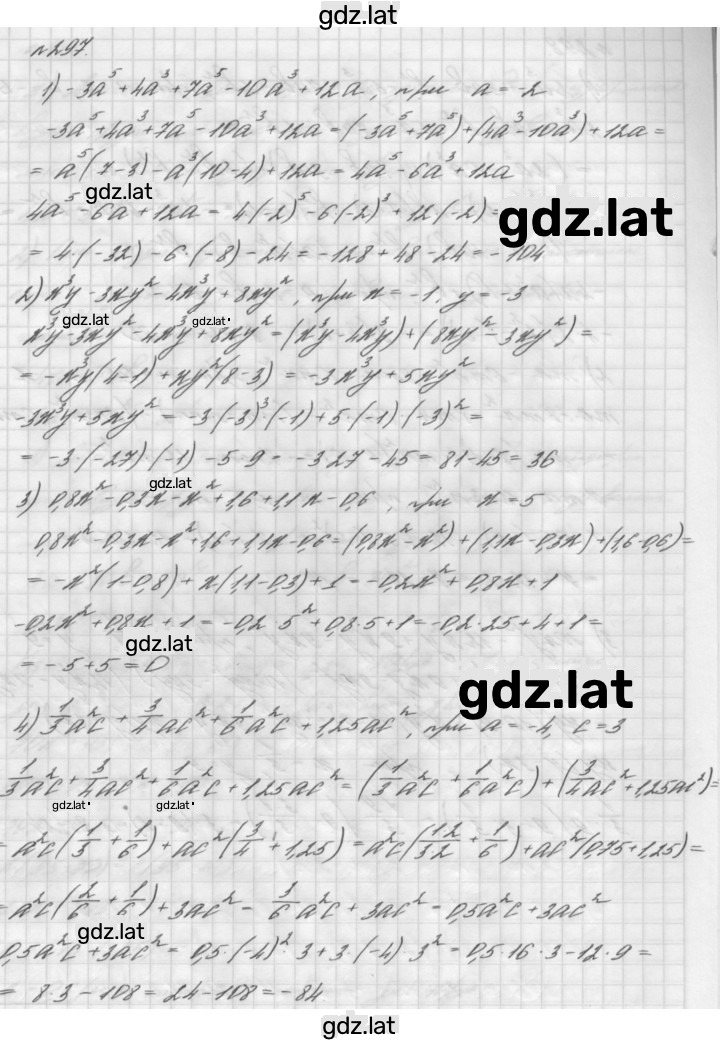 gdz.lat
№297.
1) -3a⁵+4a³+7a⁵-10a³+12a, при a=-2
-3a⁵+4a³+7a⁵-10a³+12a=(-3a⁵+7a⁵)+(4a³-10a³)+12a=
= a⁵(7-3)-a³(10-4)+12a=4a⁵-6a³+12a
gdz.lat
4a⁵-6a+12a= 4(-2)⁵-6(-2)³+12(-2)=
gdz.lat
= 4·(-32)-6·(-8)-24=-128+48-24=-104
2) x³y-3xy²-4x³y+8xy², при x=-1, y=-3
gdz.lat gdz.lat
x³y-3xy²-4x³y+8xy²=(x³y-4x³y)+(8xy²-3xy²)=
= -x³y(4-1)+xy²(8-3) = -3x³y+5xy²
-3x³y+5xy² = -3(-3)³·(-1)+5·(-1)·(-3)²=
= -3·(-27)(-1)-5·9=-3·27-45=81-45=36
gdz.lat
3) 0,8x²-0,3x-x²+1,6+1,1x-0,6, при x=5
0,8x²-0,3x-x²+1,6+1,1x-0,6=(0,8x²-x²)+(1,1x-0,3x)+(1,6-0,6)=
= -x²(1-0,8)+x(1,1-0,3)+1=-0,2x²+0,8x+1
-0,2x²+0,8x+1=-0,2·5²+0,8·5+1=-0,2·25+4+1=
gdz.lat
= -5+5=0
gdz.lat
4) 1/3a²c+3/4ac²+1/6a²c+1,25ac², при a=-4, c=3
1/3a²c+3/4ac²+1/6a²c+1,25ac²=(1/3a²c+1/6a²c)+(3/4ac²+1,25ac²)=
gdz.lat gdz.lat
= a²c(1/3+1/6)+ac²(3/4+1,25)=a²c(12/32+1/6)+ac²(0,75+1,25)=
= a²c(2/6+1/6)+3ac²=3/6a²c+3ac²=0,5a²c+3ac²
gdz.lat
0,5a²c+3ac²=0,5·(-4)²·3+3·(-4)·3²=0,5·16·3-12·9=
= 8·3-108=24-108=-84
gdz.lat